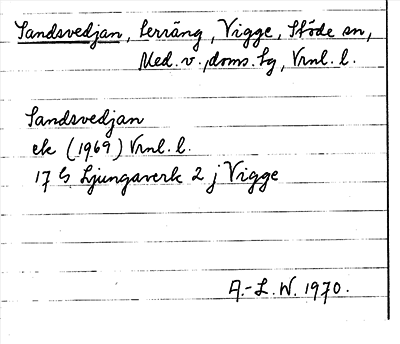 Sandsvedjan, terräng, Vigge, Stöde sn,
Med. v. doms. lg, Vrnl. l.
Sandsvedjan
ek (1969) Vrnl. l.
17 G Ljungaverk 2 j Vigge
A.-L. W. 1970.